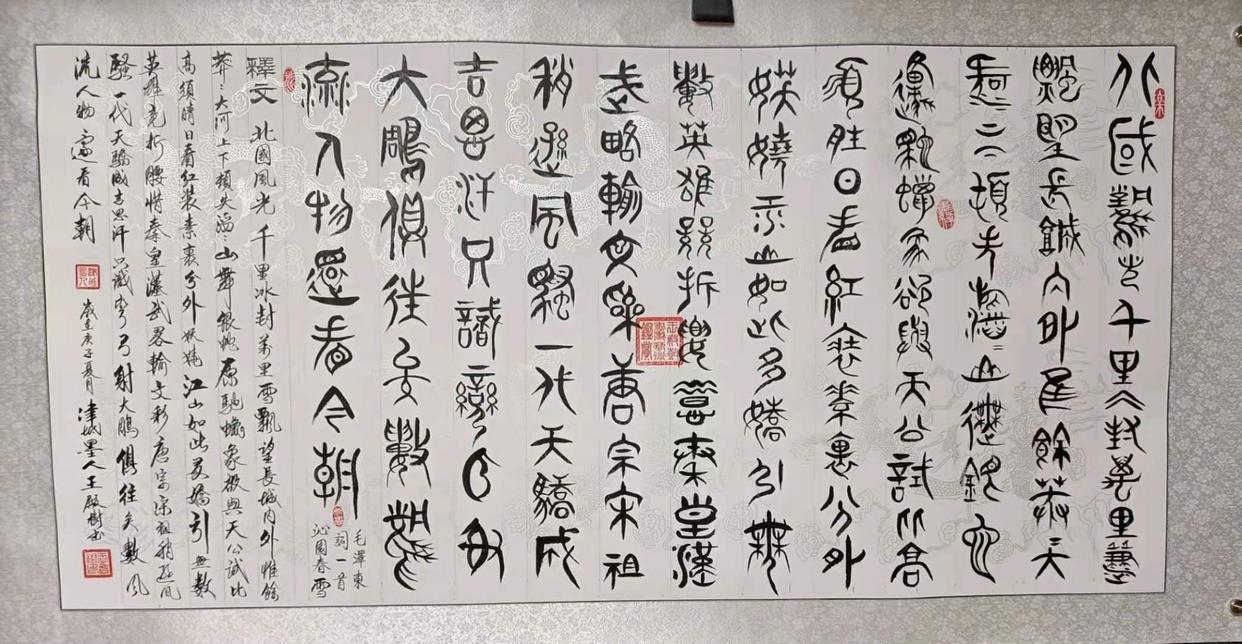 北國風光千里冰封萬里雪
飄望長城內外惟餘莽大
河上下頓失滔〻山舞銀蛇
原馳蠟象欲與天公試比高
須晴日看紅裝素裹分外
妖嬈江山如此多嬌引無
數英雄競折腰惜秦皇漢
武略輸文采唐宗宋祖
稍遜風騷一代天驕成
吉思汗只識彎弓射
大鵰俱往矣數風
流人物還看今朝
毛澤東
詞一首
沁園春雪
釋文 北國風光千里冰封萬里雪飄望長城內外惟餘
莽〻大河上下頓失滔〻山舞銀蛇原馳蠟象欲與天公試比
高須晴日看紅裝素裹分外妖嬈江山如此多嬌引無數
英雄競折腰惜秦皇漢武略輸文彩唐宗宋祖稍遜風
騷一代天驕成吉思汗只識彎弓射大鵰俱往矣數風
流人物還看今朝
歲在庚子夏月津城墨人王樹書